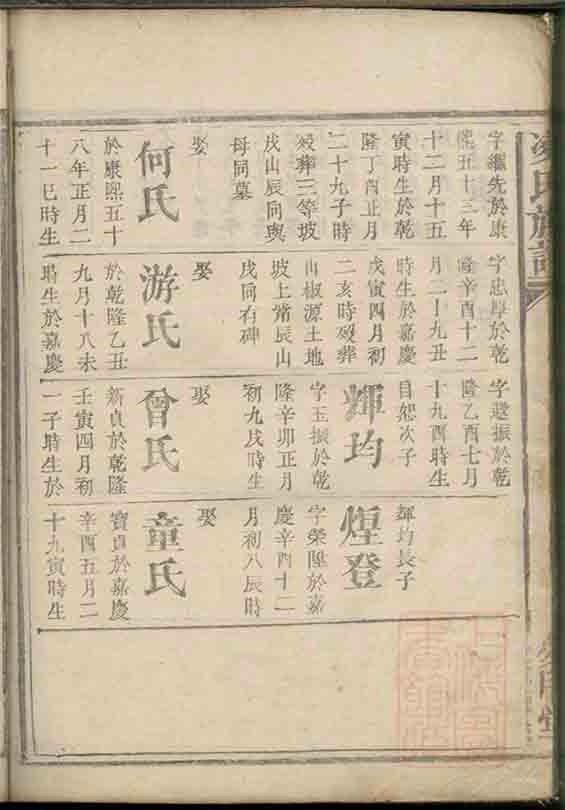 字繼先於康
熙五十三年
十二月十五
寅時生於乾
隆丁酉正月
二十九子時
歿葬三等坡
戌山辰同與
母同墓
娶
何氏
於康熙五十
八年正月二
十一巳時生
字忠厚於乾
隆辛酉十二
月二十九丑
時生於嘉慶
戊寅四月初
二亥時歿葬
山椒源土地
坡上黹辰山
戌同右碑
娶
游氏
於乾隆乙丑
九月十八未
時生於嘉慶
字遜振於乾
隆乙酉七月
十九酉時生
自恕次子
輝均
字玉振於乾
隆辛卯正月
初九戌時生
娶
曾氏
新貞於乾隆
壬寅四月初
一子時生於
輝均長子
煌登
字榮陞於嘉
慶辛酉十二
月初八辰時
娶
童氏
寶貞於嘉慶
辛酉五月二
十九寅時生
氏族譜
堂